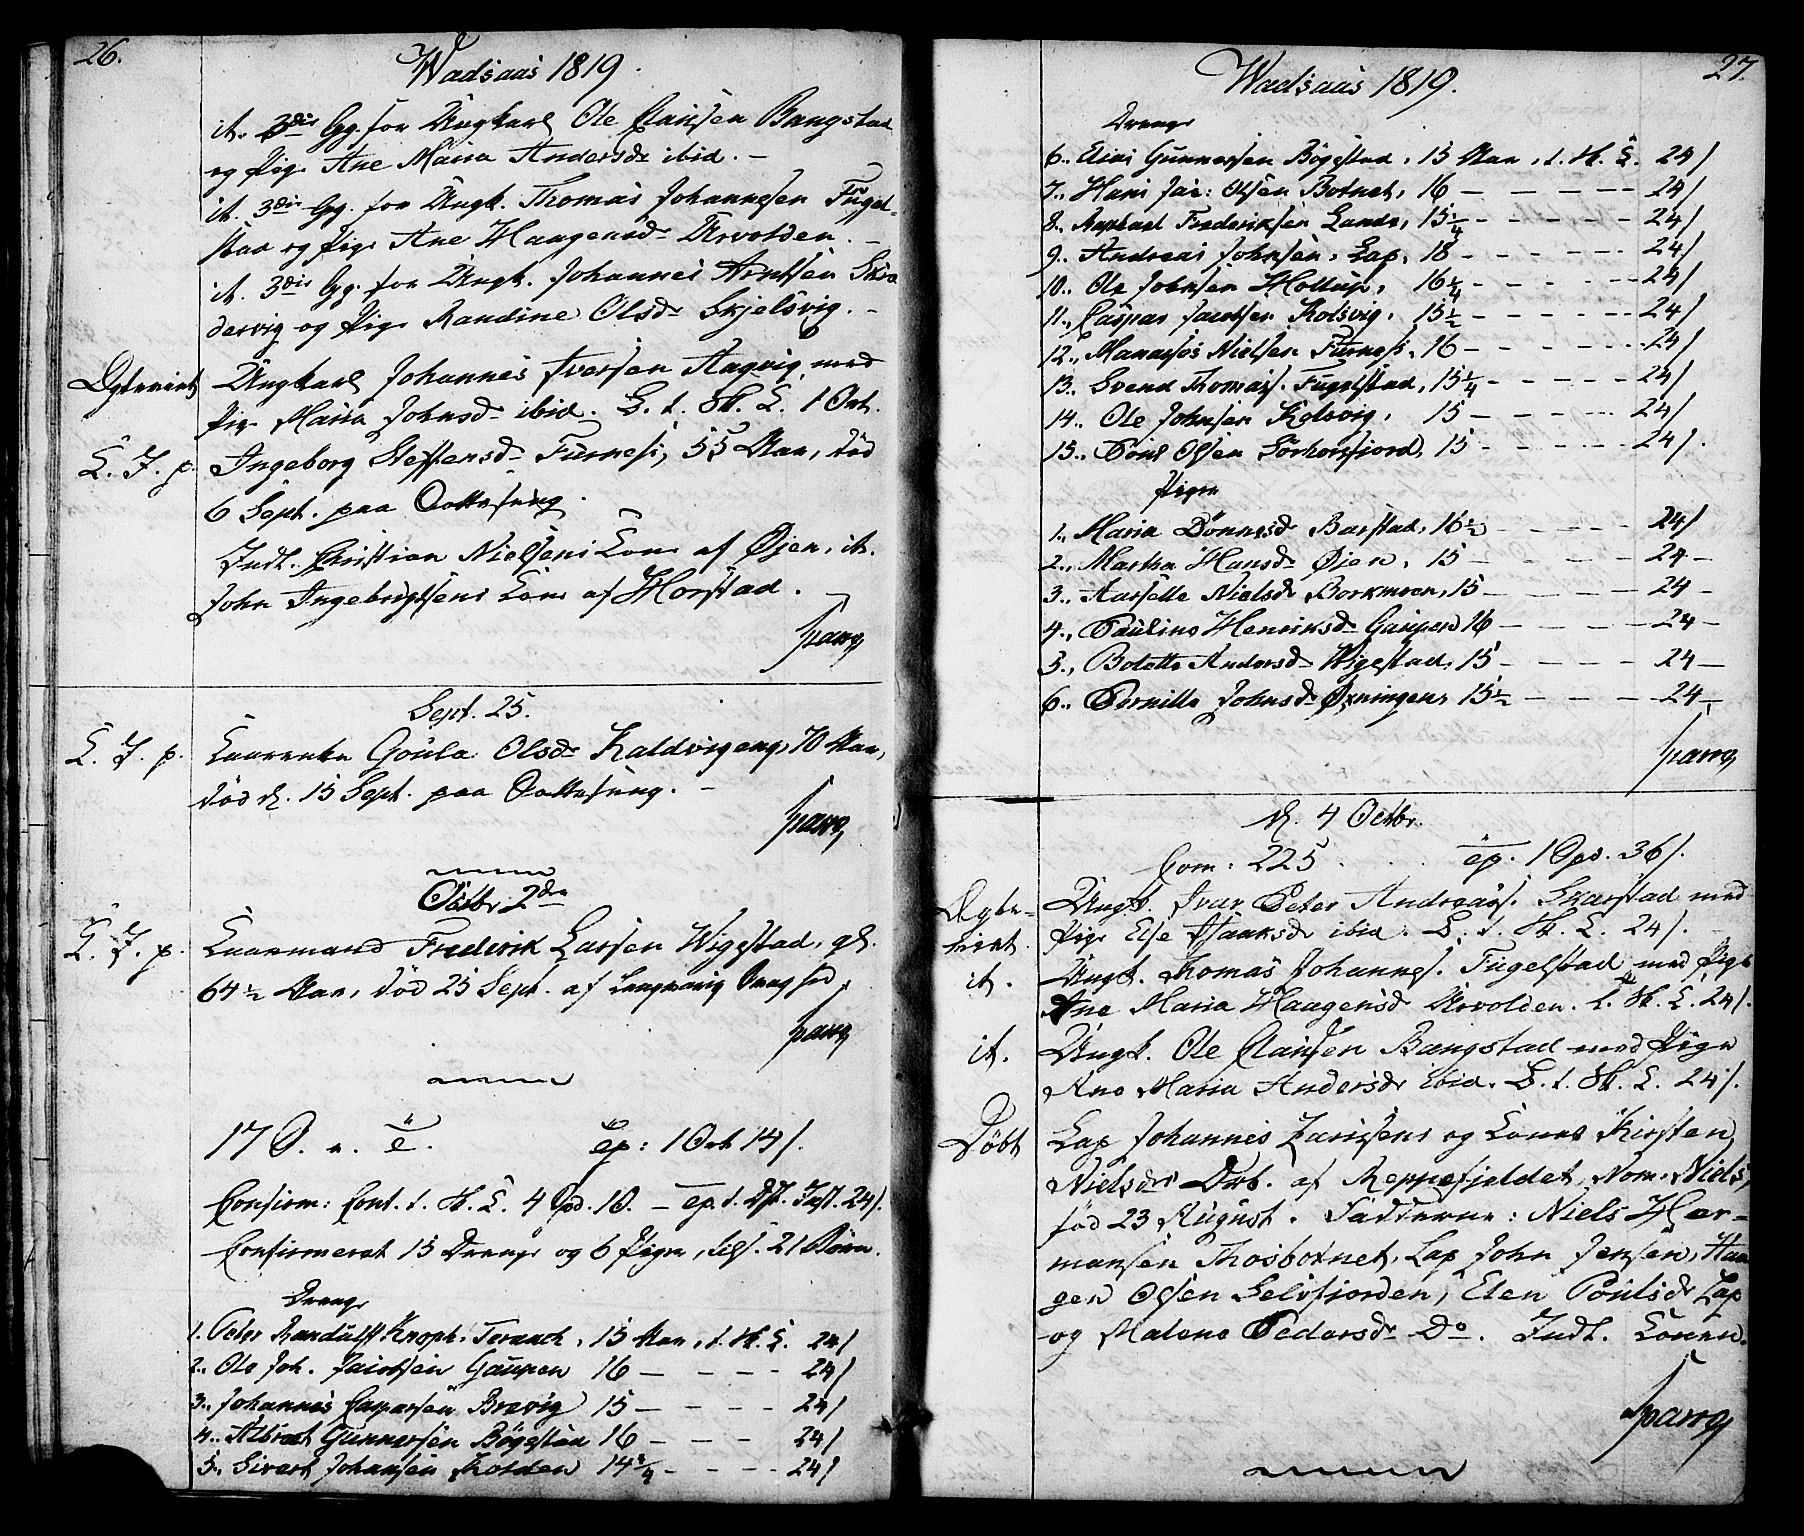 26.
Wadsaas 1819.
it. 3die Gg. for Ungkarl Ole Clausen Bangstad
og Pige Ane Maria Andersdr ibid. -
it. 3die Gg. for Ungk. Thomas Johannesen Fugel-
stad og Pige Ane Haagensdr Urvolden. -
it. 3die Gg. for Ungk. Johannes Arntsen
dervig og Pige Randine Olsdr Skjelsvig. -
Ægteviet Ungkarl Johannes Iversen Aagvig med
Pige Maria Johnsdr ibid. B. t. H. S. 1 Ort.
S. J. p. Ingeborg Steffensdr Furnesi, 55 Aar, død
6 Sept. paa
Indl. Christian Nielsens Kone af Øjen, it.
John Ingebrigtsens Kone af Horstad.
Parrg
Sept. 25.
S. J. p. Goula Olsdr Kaldvigeng, 70 Aar,
død d. 15 Sept. paa
Parrg
Octbr 2den
S. J. p. Frederik Larsen Wigestad, gl.
64 1/2 Aar, død 25 Sept. af
Parrg
17 S. e. ë. ep: 1 Ort 14 s.
Confirm: Cont. t. H. S. 4 Spd. 1 O. - ep. t. Inst. 24 s.
Confirmeret 15 Drenge og 6 Piger, tils. 21 Børn.
Drenge
1. Peter Randulf Knoph, 15 Aar, t. H. S. 24 s
2., Ole Joh. Gaupen 16 - - - - 24 s
3., Johannes Caspersen Brevig 15 - - - - 24 s
4., Albret Gunnersen Bøgestad 16 - - - 24 s
5., Sivert Johansen Holden 14 3/4 - - - - 24 s
27.
Wadsaas 1819.
Drenge
6., Elias Gunnersen Bøgestad, 15 Aar, t. H. S. 24 s
7., Hans Jac: Olsen Botnet, 16 - - - - - 24 s
8., Raphael Frederiksen Lande, 15 1/4 - - - - 24 s
9., Andreas Johnsen, Lap, 18 - - - - - 24 s
10., Ole Johnsen Holtup, 16 1/4 - - - - - 24 s
11., Caspar Jacobsen Kolsvig, 15 1/2 - - - - 24 s
12., Manasses Nielsen Furnesi, 16 - - - - - 24 s
13., Svend Thomass. Fugelstad, 15 1/4 - - - - 24 s
14., Ole Johnsen Kolsvig, 15 - - - - - 24 s
15., Poul Olsen Sørhorsfjord, 15 - - - - - 24 s.
Piger
1., Maria Dønnesdr Barstad, 16 1/2 - - - - 24 s
2., Martha Hansdr Øjen, 15 - - - - - 24 -
3., Nielsdr Borkmoen, 15 - - - - - 24 -
4., Pauline Henriksdr Gaupen 16 - - - - 24 -
5., Bolette Andersdr Wigestad, 15 - - - - 24 -
6., Pernille Johnsdr Øxningen, 15 1/2 - - - - 24 -
Parrg
d. 4 Octbr.
Com: 225 . . . ep. 1 Ops. 36 s.
Ægte-
viet. Ungk. Ivar Peter Andreass. Skarstad med
Pige Else Isaaksdr ibid. B. t. H. S. 24 s.
it. Ungk. Thomas Johannes. Fugelstad med Pige
Ane Maria Haagensdr Urvolden. t. H. S. 24 s.
it. Ungk. Ole Clausen Bangstad med Pige
Ane Maria Andersdr ibid. B. t. H. S. 24 s.
Døbt Lap Johannes Zarissens og Kones Kirsten
Nielsdrs Drb. af Reppefjeldet, Nom. Niels,
fød 23 August. Fadderne: Niels Her-
mansen Thosbotnet, Lap John Jensen, Haa
gen Olsen Selvfjorden, Elen Poulsdr Lap
og Malene Pedersdr Do. Indl. Konen.
Parrg